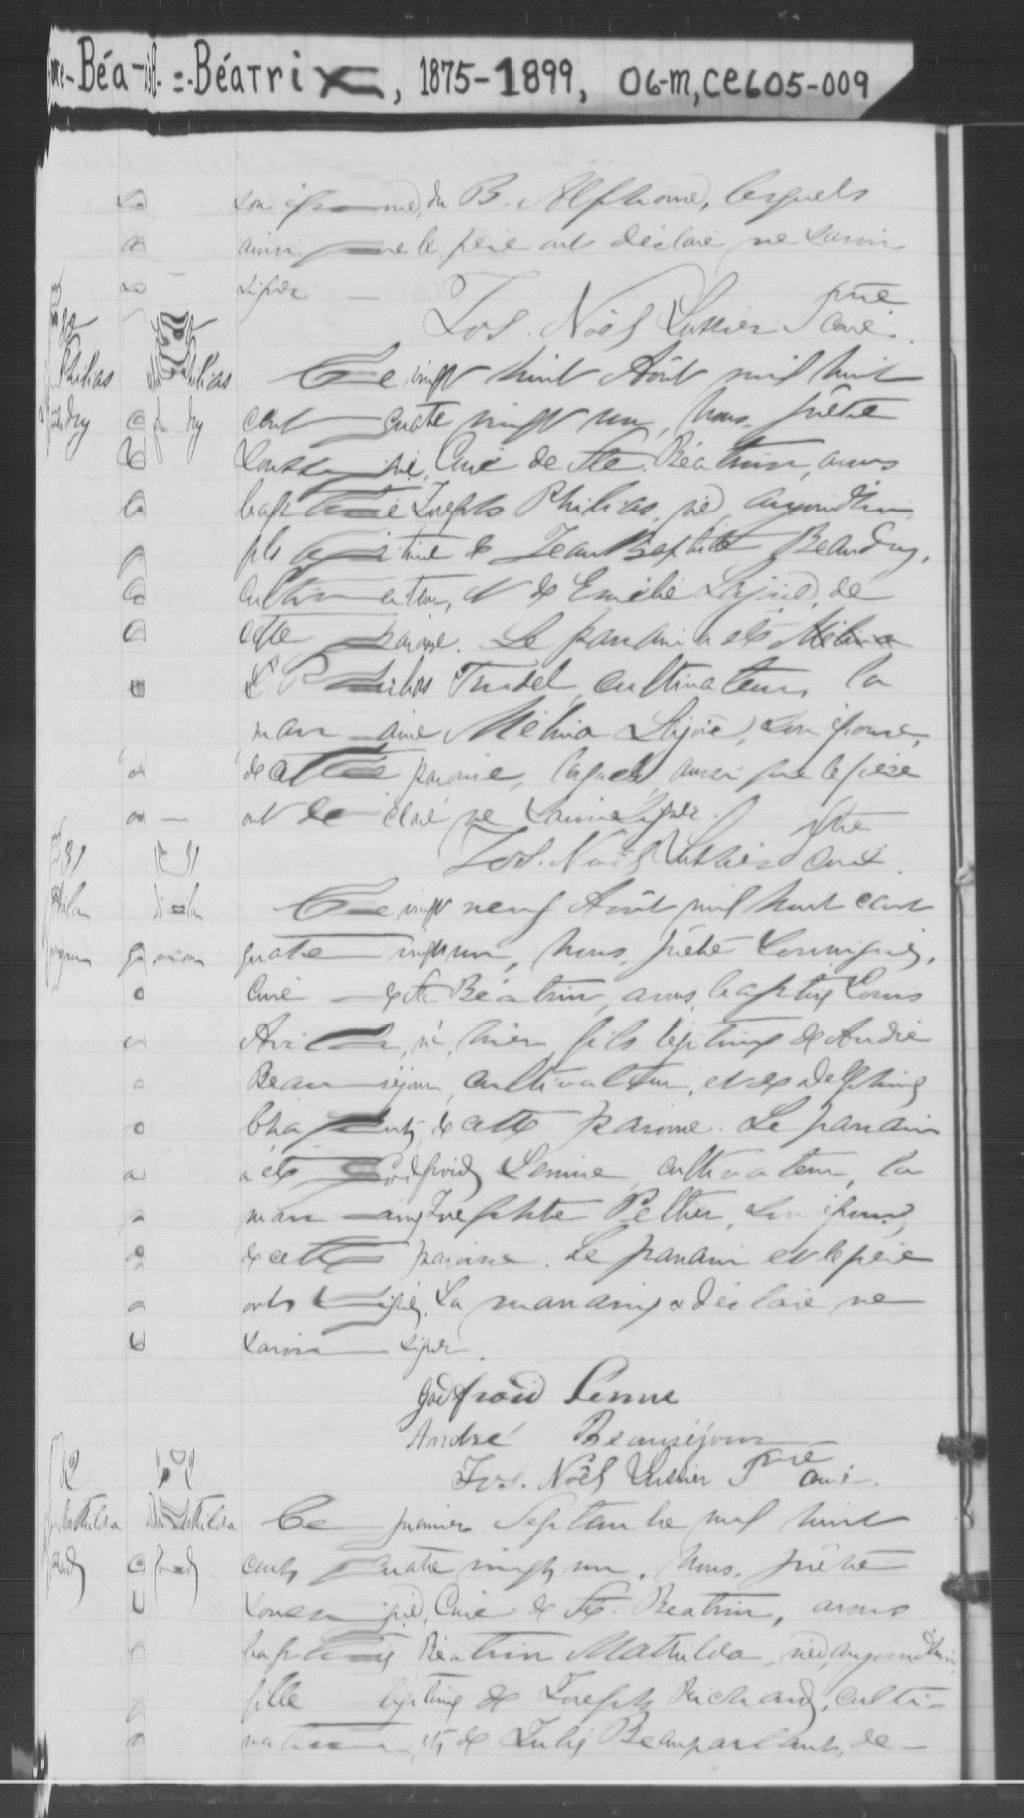 -Béa = Béatrix, 1875-1899, 06-M, CE605-009
du B. Alphonse, lesquels
ainsi que le père ont déclaré ne savoir
signer
Jos. Noël Lussier Ptre Curé.
Philias Philias
Ce vingt huit Août mil huit
cent quatre vingt un, Nous, prêtre
Curé de Ste Béatrix, avons
baptisé Joseph Philias, né aujourd'hui
fils légitime de Jean Baptiste Beaudry,
cultivateur, et de Emélie Lajoie, de
cette paroisse. Le parrain a été
Philias Trudel cultivateur, la
marraine Mélina Lajoie, son épouse,
de cette paroisse, lesquels ainsi que le père
ont déclaré ne savoir signer.
Jos. Noël Lussier Ptre Curé
31 31
Ce vingt neuf Août mil huit cent
quatre vingt un, Nous, prêtre soussigné,
Curé de Ste Béatrix, avons baptisé Louis
né hier, fils légitime de André
Beauséjour, cultivateur, et de Delphine
de cette paroisse. Le parrain
a été Godfroid cultivateur, la
marraine Josephte Peltier, son épouse,
de cette paroisse. Le parrain et le père
ont signé. La marraine a déclaré ne
savoir signer.
Godfroid
André Beauséjour
Jos. Noël Lussier Ptre Curé.
Mathilda Mathilda
Ce premier Septembre mil huit
cent quatre vingt un, Nous, prêtre
soussigné, Curé de Ste. Béatrix, avons
baptisé Béatrix Mathilda, née aujourd'hui
fille légitime de Joseph Richard, culti-
vateur, et de Julie Beauparlant, de